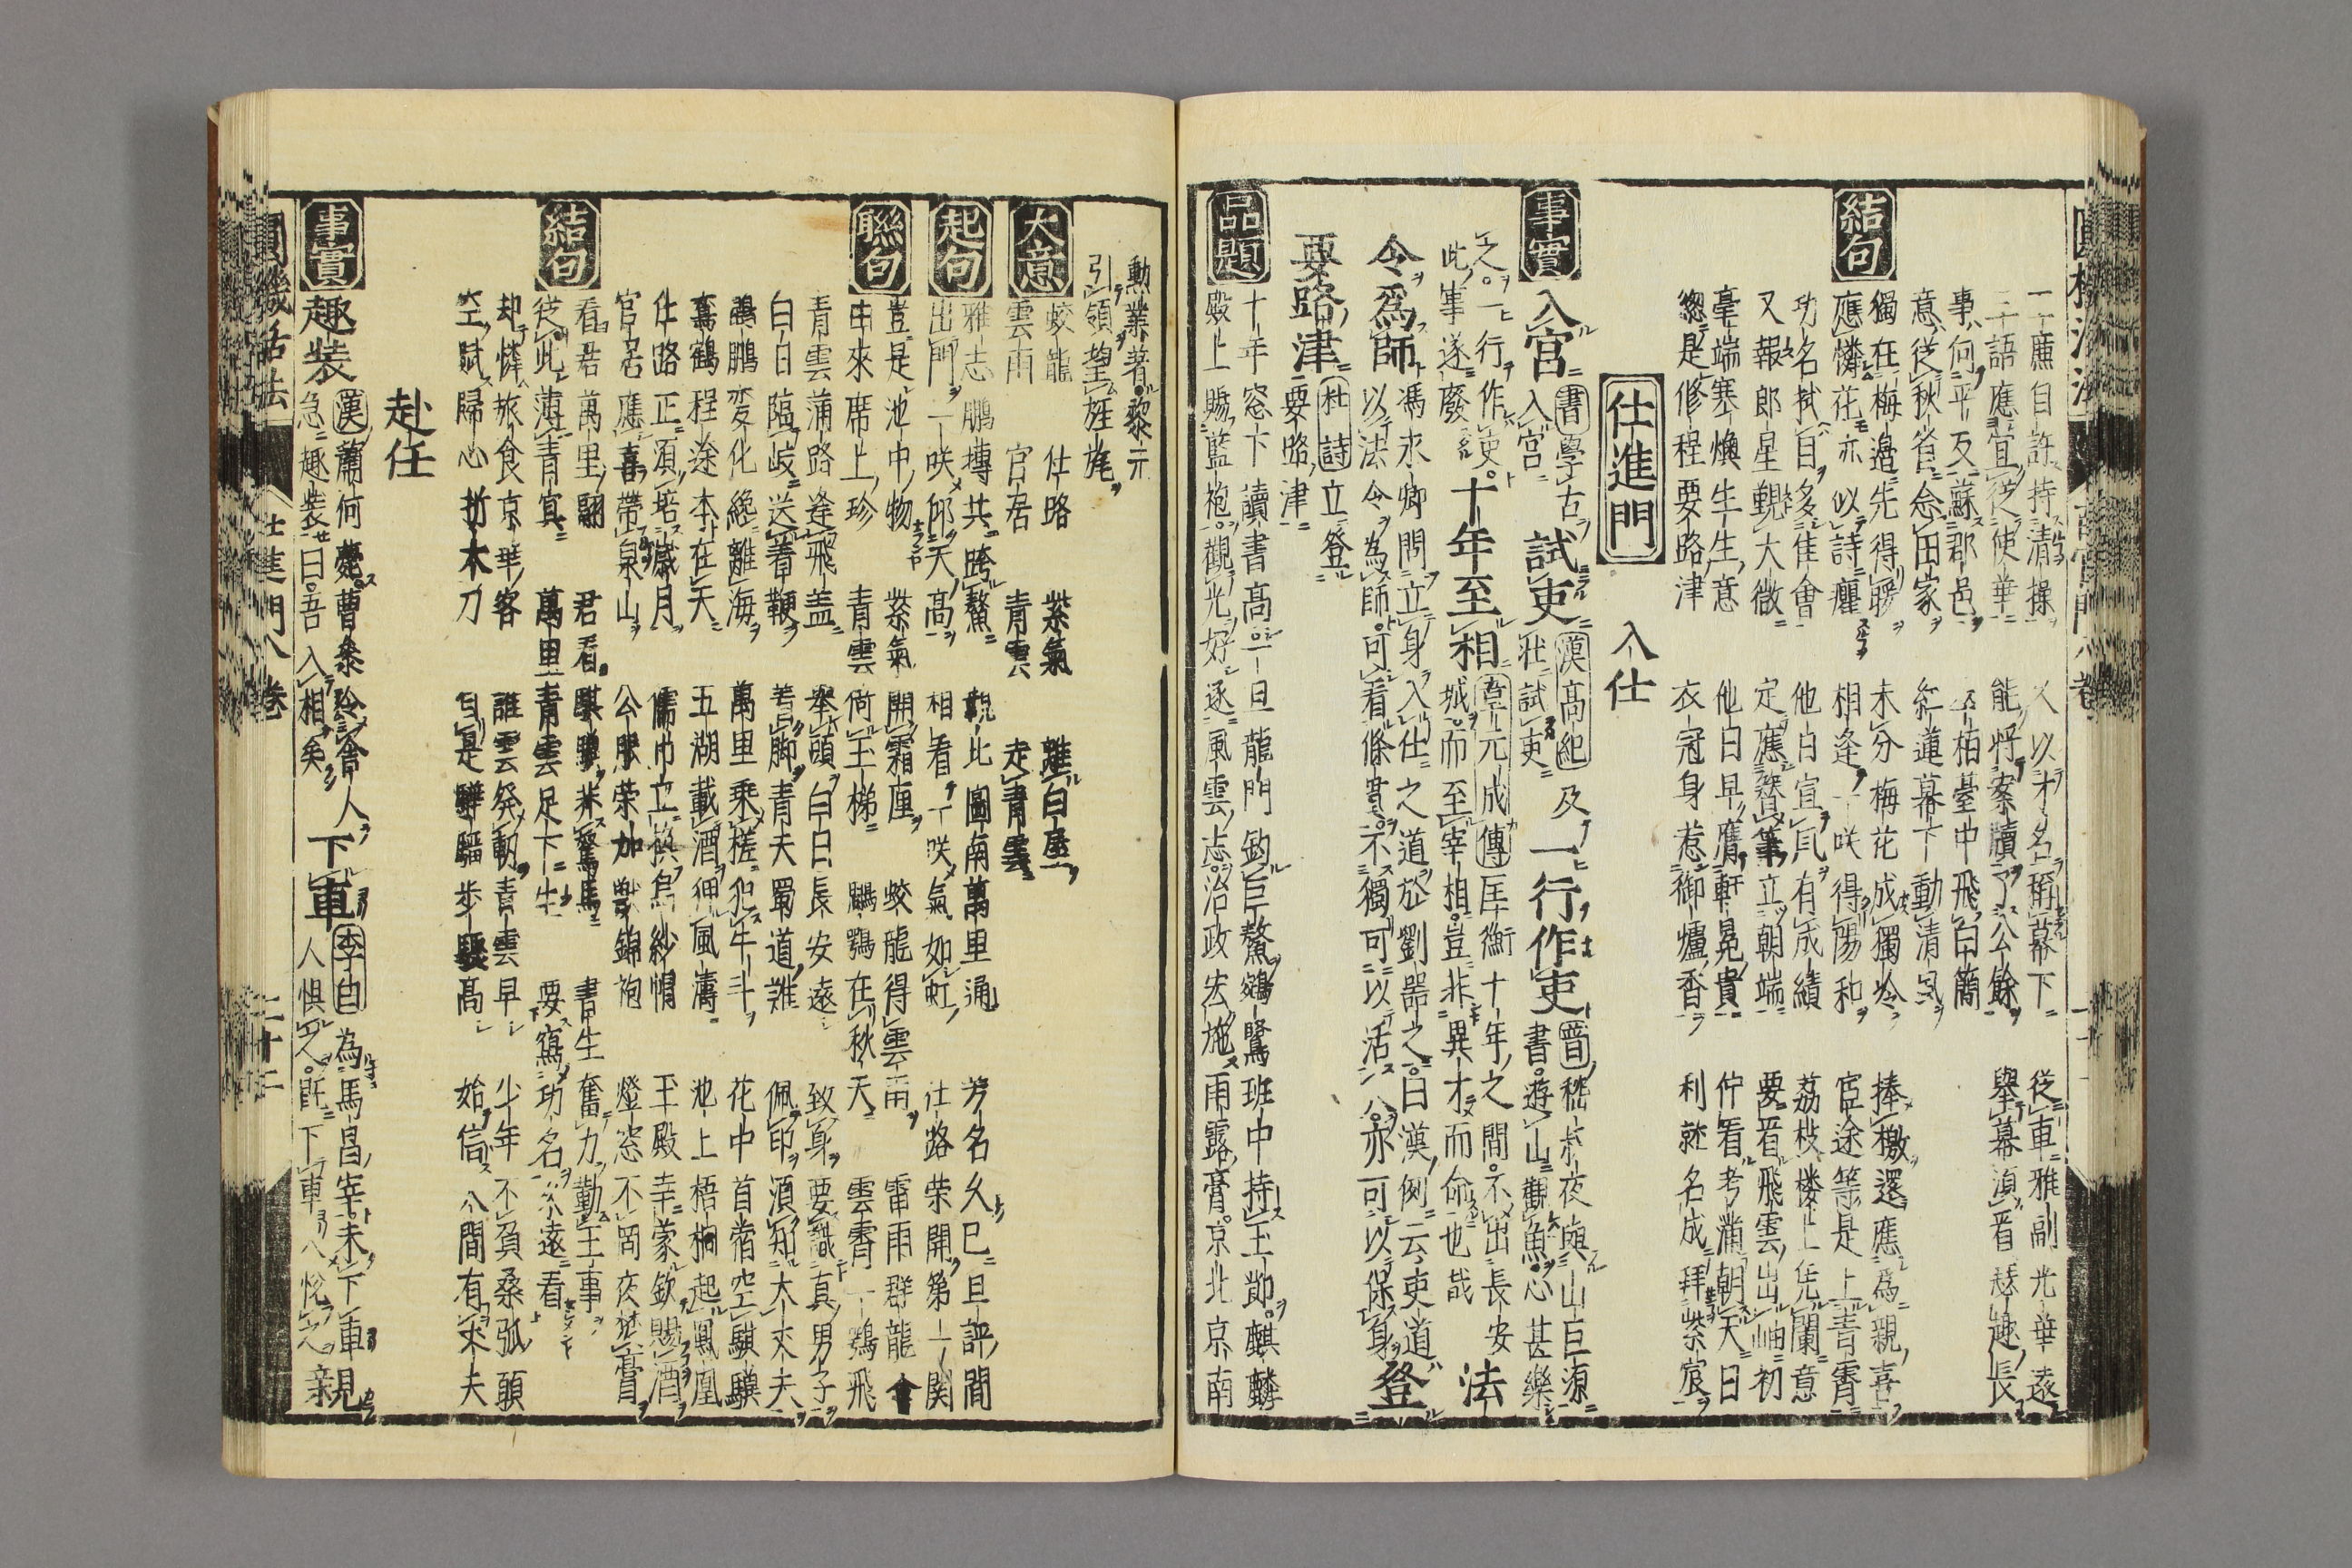 一廉自許持清操 人以才名稱幕下 從車雅副光華遠
三語應宜從使華 能將案牘了公餘 舉幕須看珠趣長
事何平反蘇郡邑 柏臺中飛白簡
意從秋省念田家 紅蓮幕下動清風
結句 獨在梅邉先得暖 未分梅花成獨冷 捧檄還應為親喜
應憐花亦以詩癯 相逢一咲得陽和 宦途等是上青霄
功名拭目多佳會 他日宣風有成績 荔枝楼上凭闌意
又報郎星覲大微 定應簪筆立朝端 要看飛雲出岫初
毫端寒煥生生意 他日早膺軒冕貴 佇看考滿朝天日
總是修程要路津 衣冠身惹御爐香 利就名成拜紫宸
仕進門 入仕
事實 入官 書學古入官 試吏 漢高紀及壯試吏 一行作吏 晋嵆叔夜與山巨源書遊山觀魚心甚樂
之一行作吏此事遂廢 十年至相 韋元成傳匡衡十年之間不出長安城而至宰相豈非異才而命也哉 法
令爲師 馮求卿問立身入仕之道於劉器之曰漢例云吏道以法令為師可看條貫不獨可以活人亦可以保身 登
要路津 杜詩立登要路津
品題 十年窓下讀書髙一旦龍門釣巨鰲鵷鷺班中持玉節麒麟
殿上賜藍袍觀光好逐風雲志治政宏施雨露膏京北京南
勳業著黎元
引領望旌旄
大意 蛟龍 仕路 紫氣 離白屋
雲雨 官居 青雲 走青雲
起句 雅志鵬摶共跨鰲 覩此圖南萬里通 芳名久巳旦評間
出門一咲仰天高 相看一咲氣如虹 仕路榮開第一関
聯句 豈是池中物 紫氣開霜匣 蛟龍得雲雨 雷雨群龍會
由來席上珍 青雲倚玉梯 鵰鶚在秋天 雲霄一鶚飛
青雲蒲路逢飛盖 舉頭白日長安遠 致身要識真男子
白日臨岐送着鞭 着脚青天蜀道難 佩印須知大丈夫
鵾鵬変化纔離海 萬里乘槎犯牛斗 花中首蓿空騏驥
鸞鶴程途本在天 五湖載酒狎風濤 池上梧桐起鳳凰
仕路正須培歲月 儒巾立換烏紗帽 玉殿幸蒙欽賜酒
官居應喜帶泉山 公服榮加獸錦袍 燈窓不罔夜焚膏
結句 看君萬里翻 君看騏驥非駑馬 書生奮力勤王事
從此薄青冥 萬里青雲足下生 要寫功名永遠看
却憐旅食京華客 誰雲発軔青雲早 少年不負桑弧願
空賦歸心折木刀 自是驊騮步驟高 始信人間有丈夫
赴任
事實 趣装 漢蕭何薨曹參聆舎人急趣装曰吾入相矣 下車 李白為馬昌宰未下車人惧之旣下車人悅之 親
圓機活法 仕進門 八卷 二十二